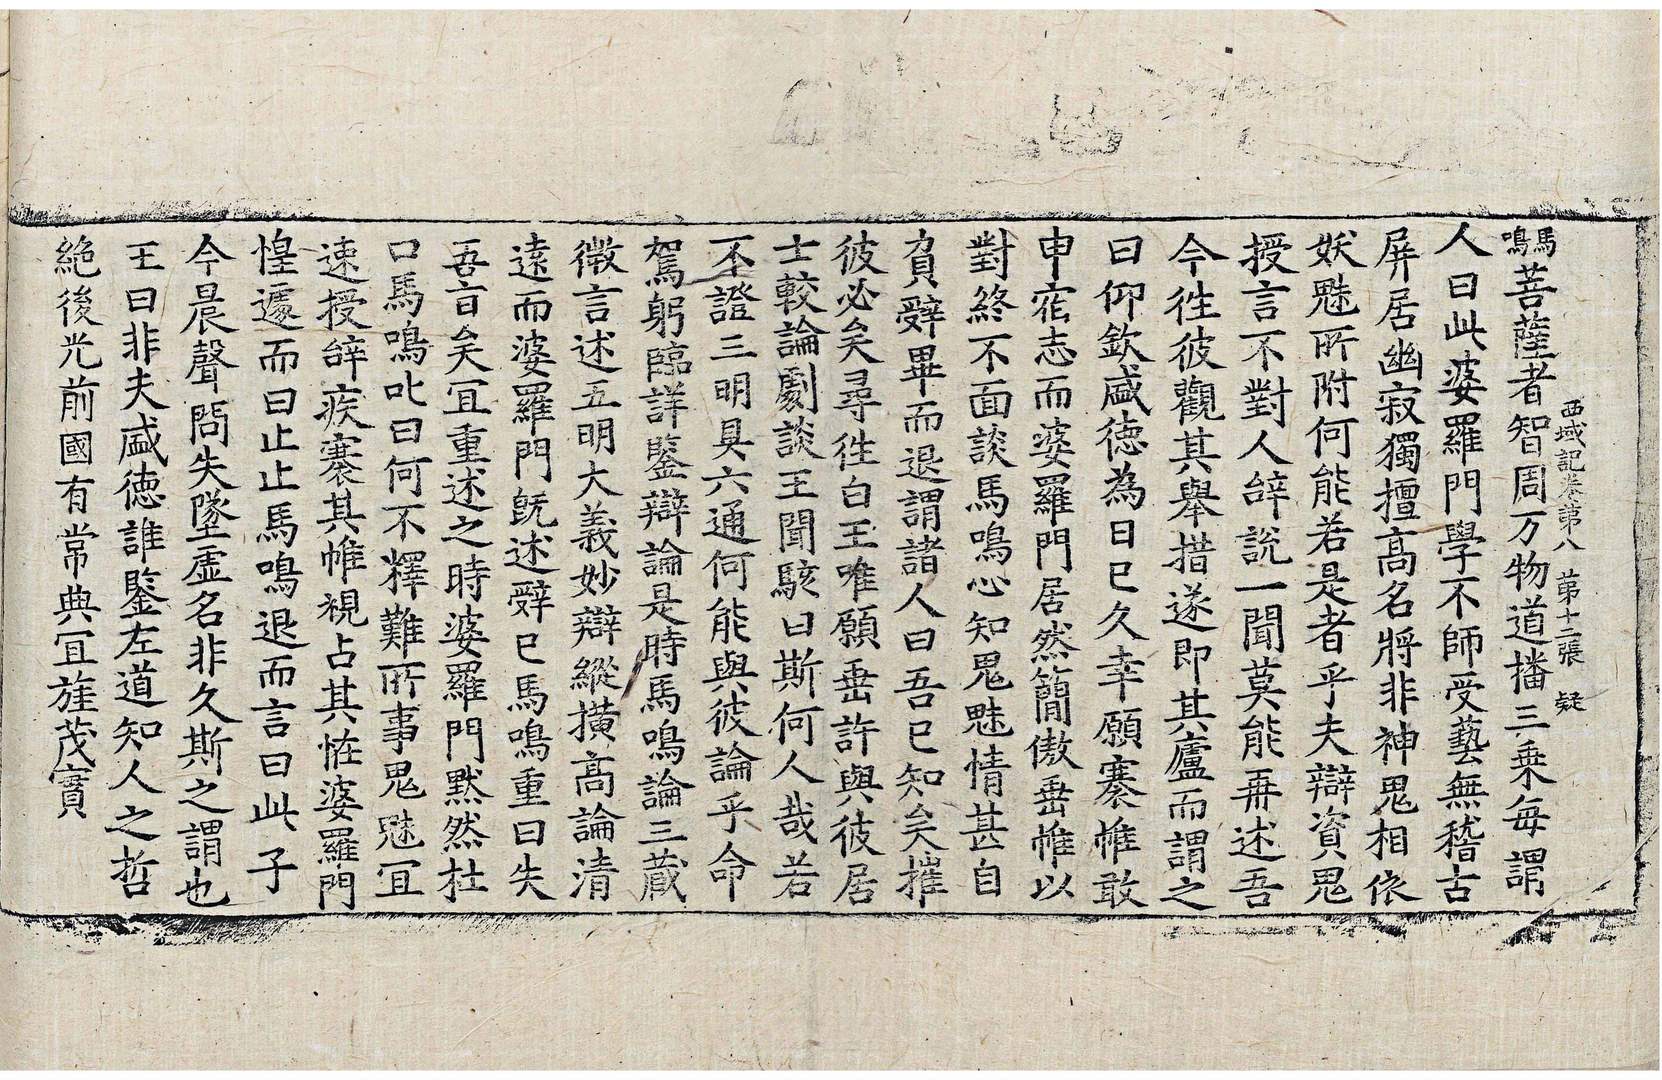 西域記卷第八 第十二張 疑
馬鳴菩薩者智周万物道播三乗每謂
人曰此婆羅門學不師受藝無稽古
屏居幽寂獨擅高名將非神鬼相依
妖魅所附何能若是者乎夫辯資鬼
授言不對人辝說一聞莫能再述吾
今徃彼觀其舉措遂即其廬而謂之
曰仰欽盛徳為日已久幸願褰帷敢
申宿志而婆羅門居然簡傲垂帷以
對終不面談馬鳴心知鬼魅情甚自
負辭畢而退謂諸人曰吾已知矣摧
彼必矣尋徃白王唯願垂許與彼居
士較論劇談王聞駭曰斯何人哉若
不證三明具六通何能與彼論乎命
駕躬臨詳鑒辯論是時馬鳴論三藏
微言述五明大義妙辯縱横高論清
遠而婆羅門既述辭已馬鳴重曰失
吾旨矣冝重述之時婆羅門默然杜
口馬鳴叱曰何不釋難所事鬼魅冝
速授辝疾褰其帷視占其恠婆羅門
惶遽而曰止止馬鳴退而言曰此子
今晨聲問失墜虛名非久斯之謂也
王曰非夫盛徳誰鑒左道知人之哲
絶後光前國有常典冝旌茂實